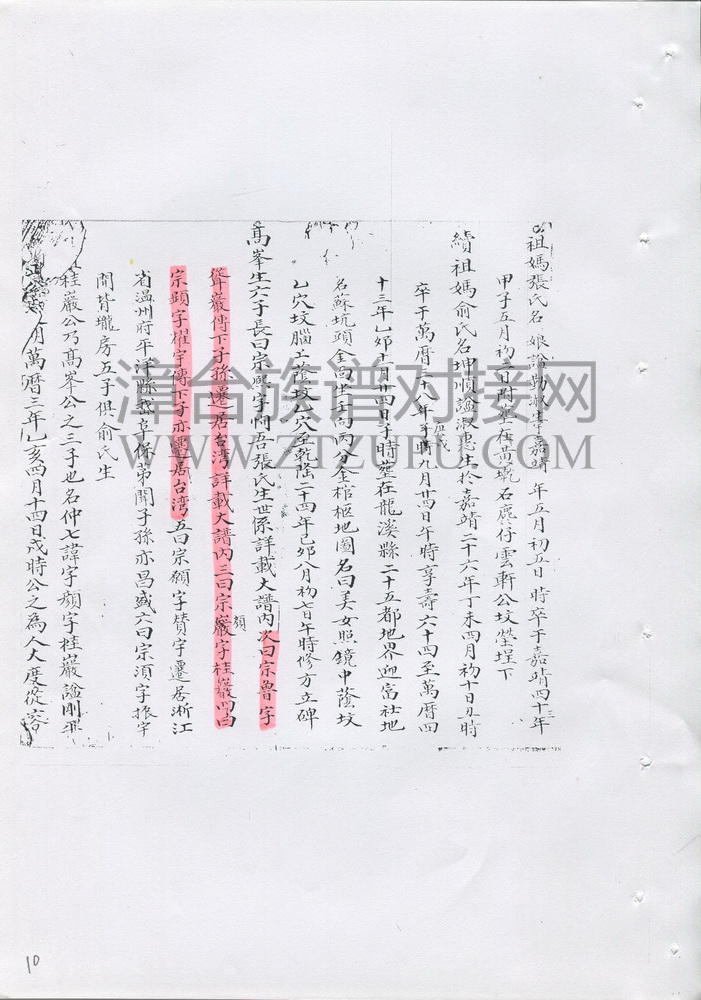 祖媽張氏名 娘謚勤淑 嘉靖 年五月初五日 時卒于嘉靖四十三年
甲子五月初二日附塟在黃 石麑仔雲軒公坟塋埕下
續祖媽俞氏名坤順謚淑惠生於嘉靖二十六年丁未四月初十日丑時
卒于萬曆三十八年 戌時九月廿四日午時享壽六十四至萬曆四
十三年乙卯十一月廿四日子時塟在龍溪縣二十五都地界迎富社地
名蘇坑頭金 坐壬向丙分金棺柩地圖名曰美女照鏡中蔭坟
乙穴坟腦上蔭坟乙穴至乾隆二十四年己卯八月初七日午時修方立碑
高峯生六子長曰宗熙字 吾張氏生世係詳載大譜內次曰宗魯字
聳巖傳下子孫遷居台湾詳載大譜內三曰宗巖顏字桂巖四曰
宗顕字耀宇傳下子亦遷居台湾五曰宗 字賛宇遷居淅江
省温州府平洋縣 阜保弟聞子孫亦昌盛六曰宗須字振宇
開背壠房五子俱俞氏生
桂巖公乃高峯公之三子也名仲七諱宇顏字桂巖謚剛
月萬曆三年乙亥四月十四日戌時公之為人大度從容
漳台族谱对接网
WWW.ZTZUPU.COM
10